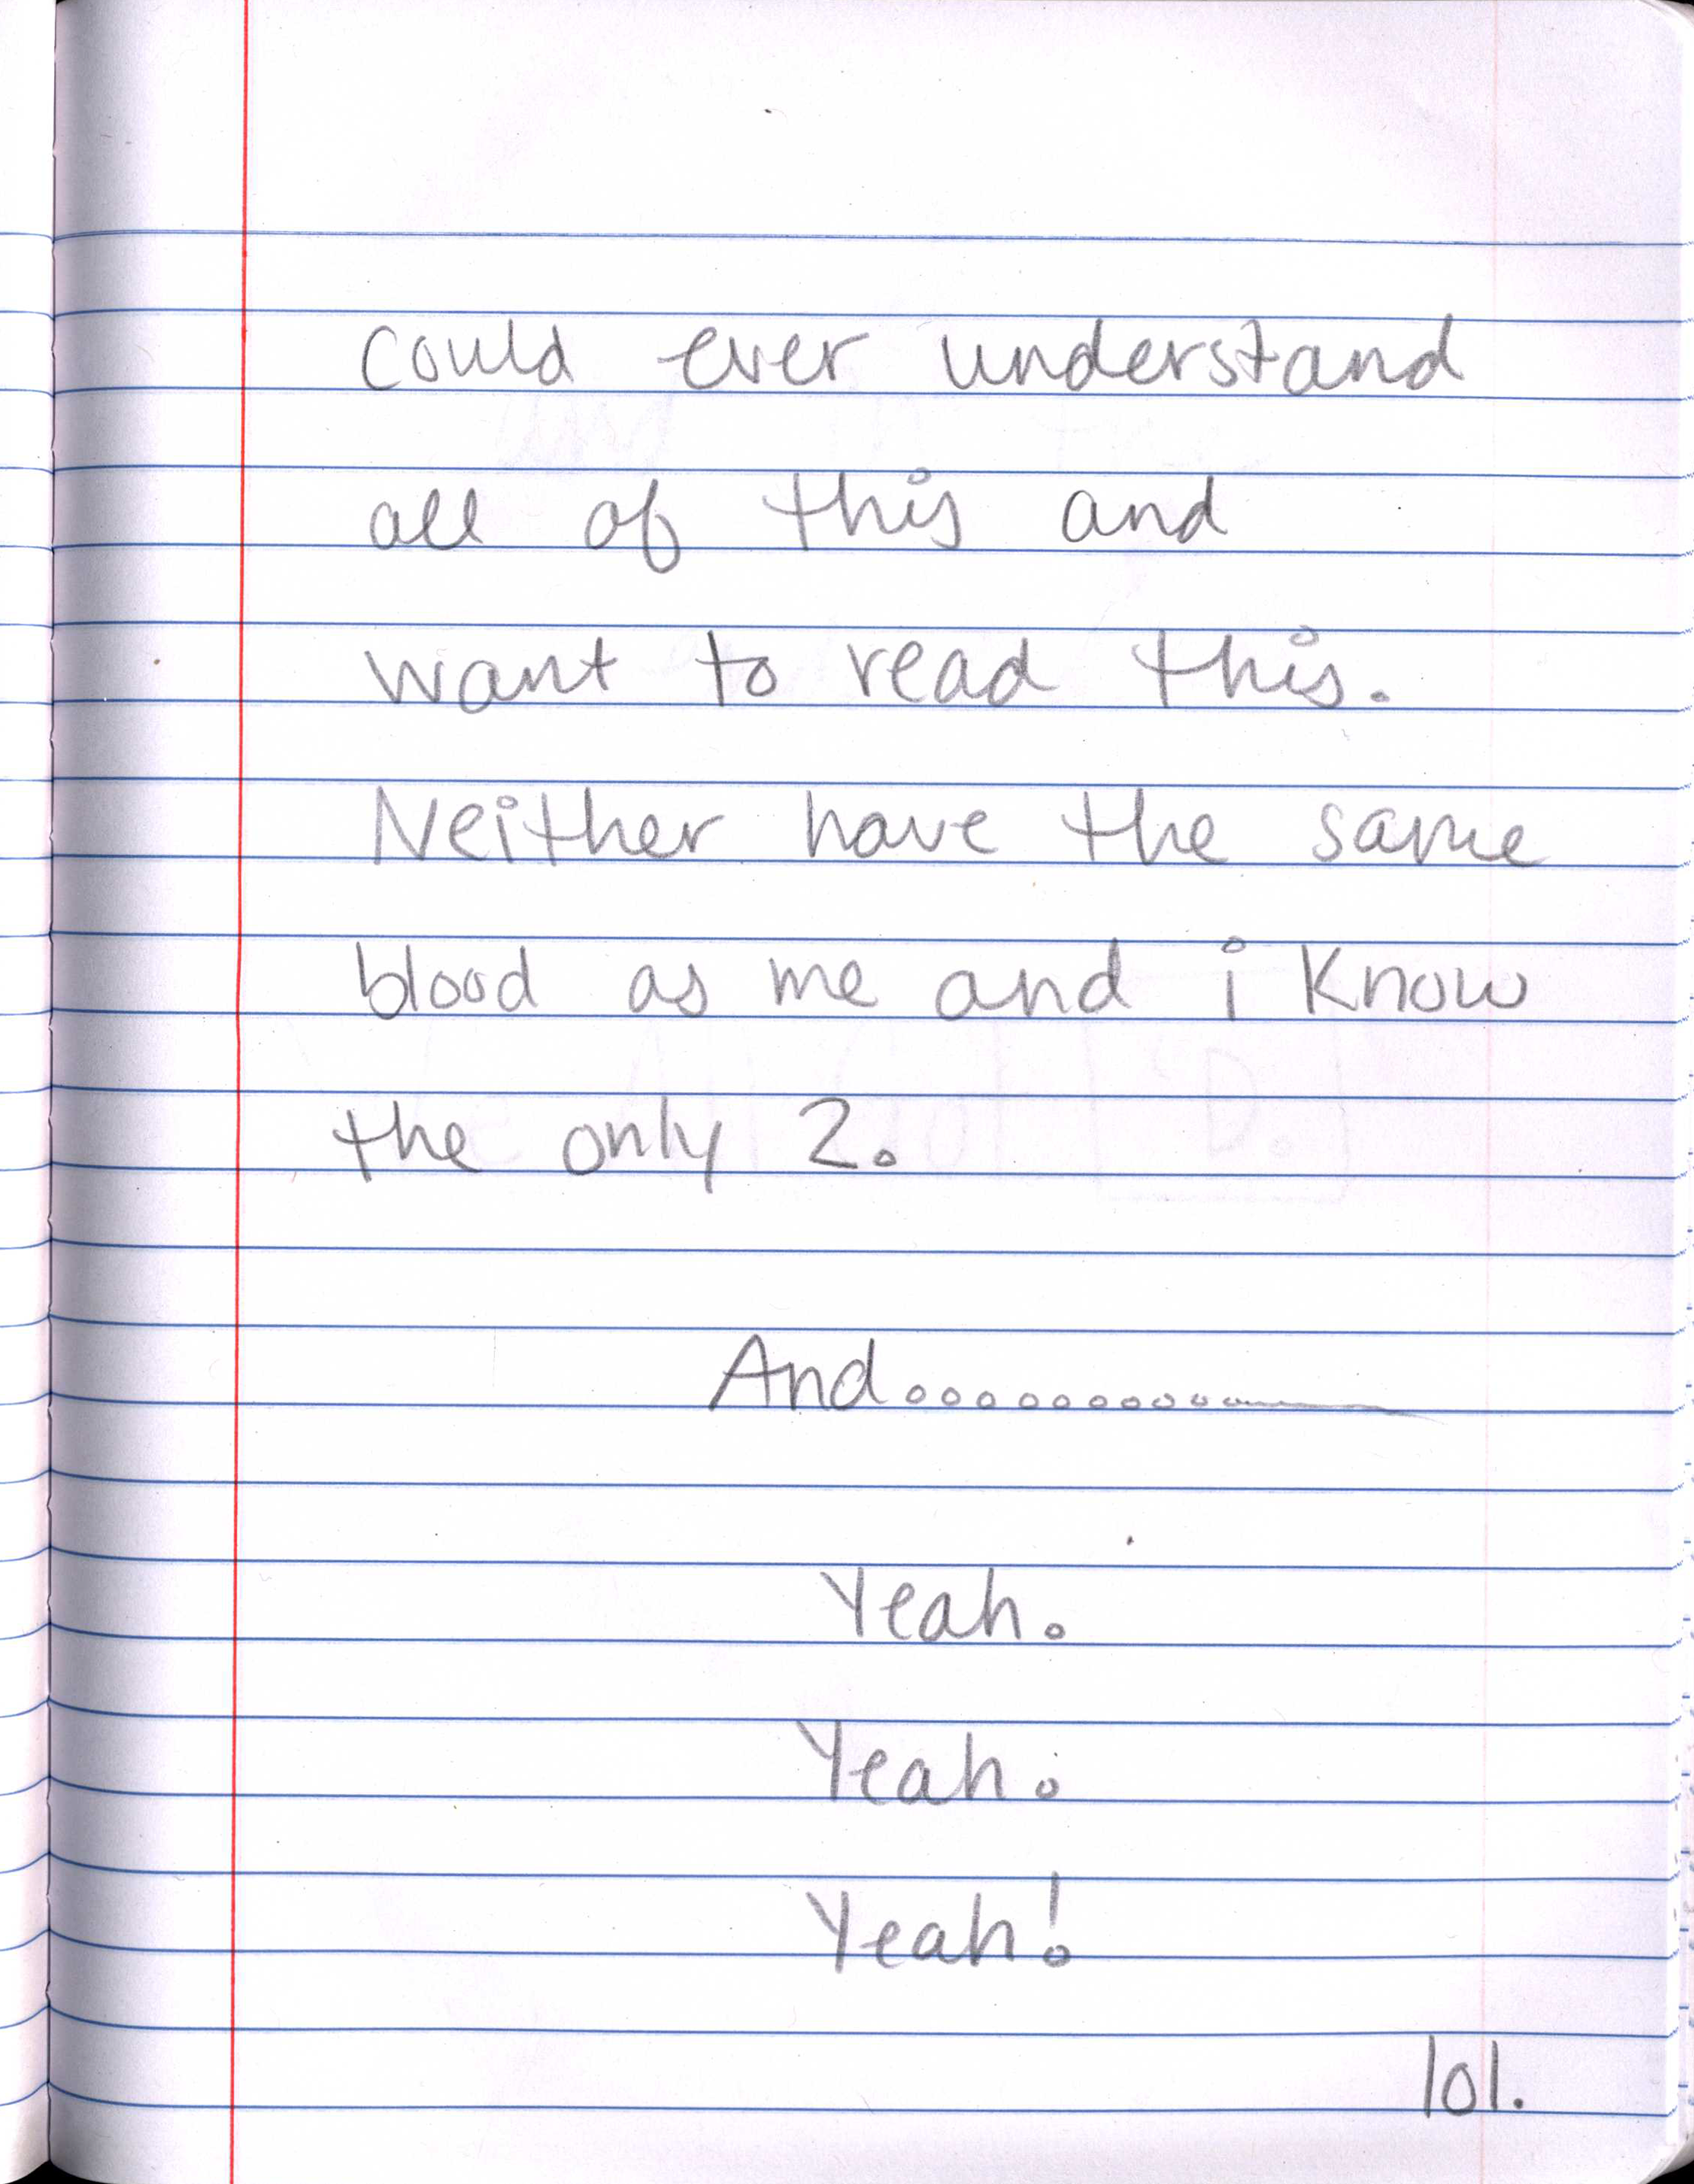 could ever understand
all of this and
want to read this.
Neither have the same
blood as me and i know
the only 2.
And............
Yeah.
Yeah.
Yeah!
101.